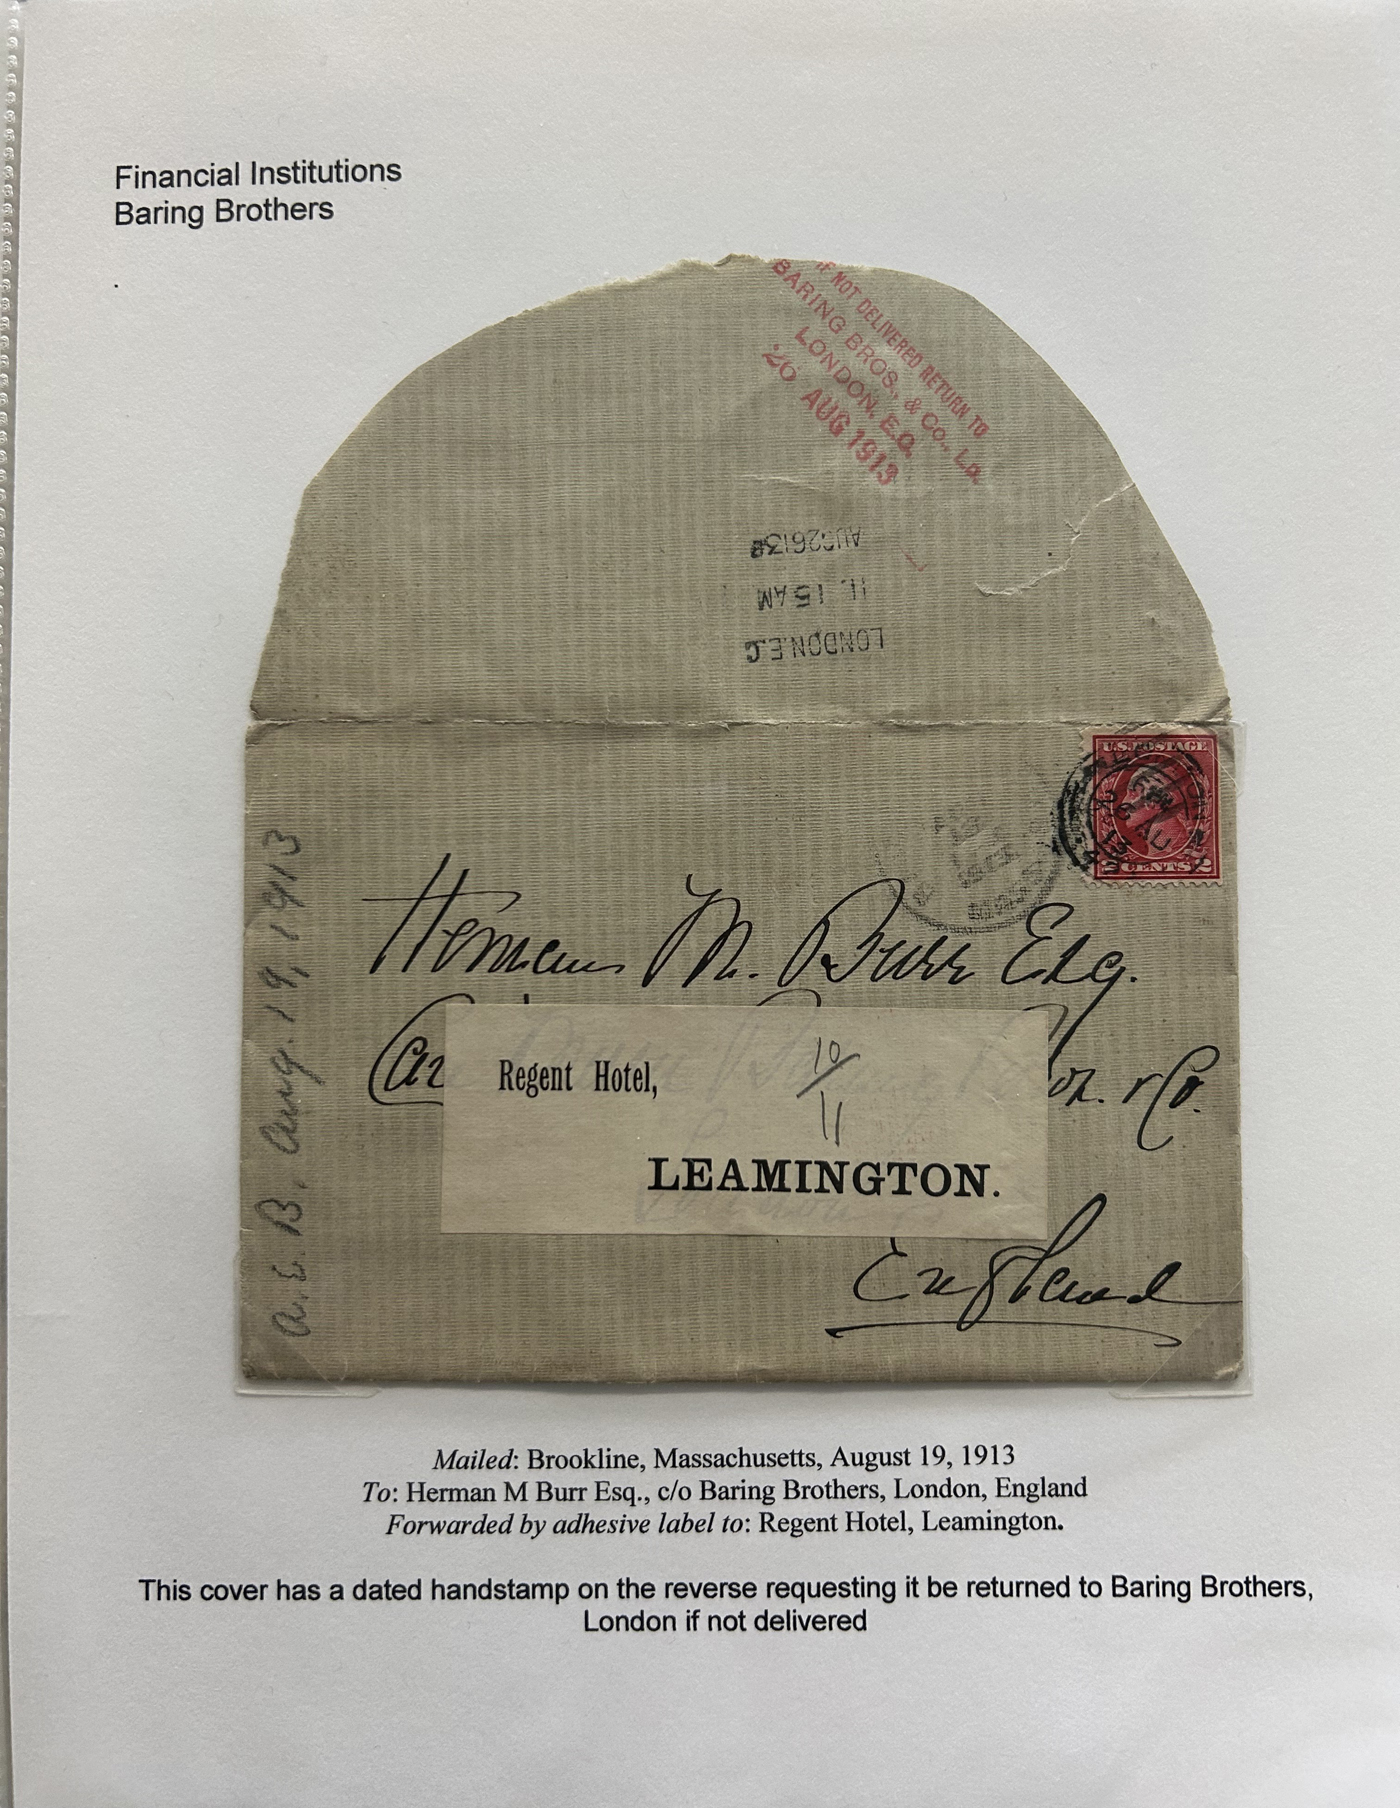 Financial Institutions
Baring Brothers
IF NOT DELIVERED RETURN TO
BARING BROS., & Co., Ld.
LONDON, E.C.
26 AUG 1913
AUG 26 13
11. 15 AM
LONDON.E.C
U.S. POSTAGE
2 CENTS 2
Herman M. Burr Esq.
Regent Hotel,
10/11
& Co.
LEAMINGTON.
England
A. E. B. Aug. 19, 1913
Mailed: Brookline, Massachusetts, August 19, 1913
To: Herman M Burr Esq., c/o Baring Brothers, London, England
Forwarded by adhesive label to: Regent Hotel, Leamington.
This cover has a dated handstamp on the reverse requesting it be returned to Baring Brothers,
London if not delivered